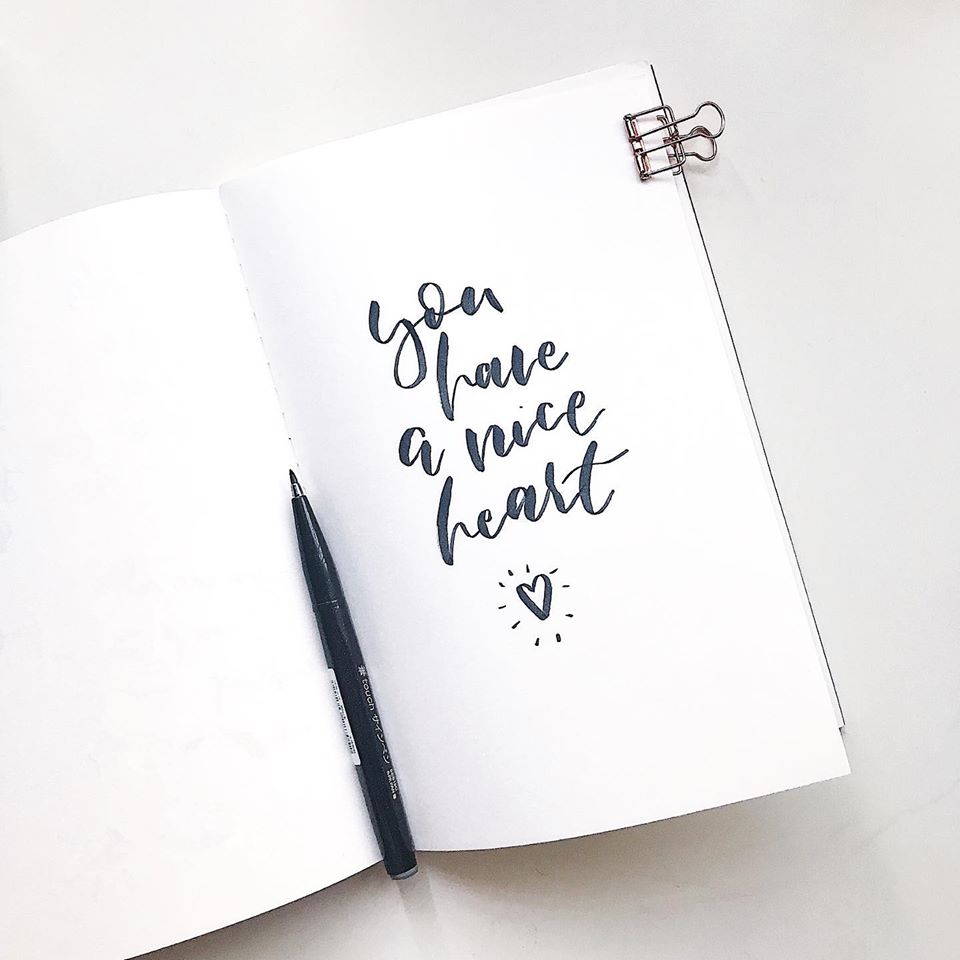 you
have
a nice
heart
touch サインペン